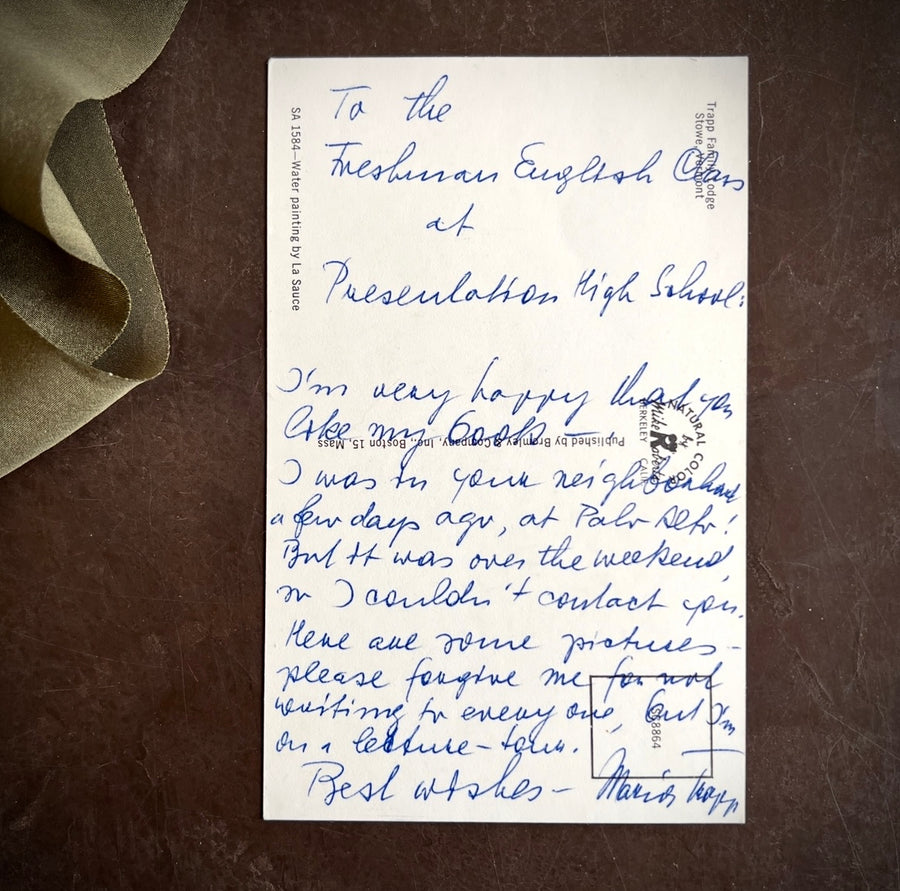 To the
Freshman English Class
at
Presentation High School:
I'm very happy that you
like my book –
I was in your neighborhood
a few days ago, at Palo Alto!
But it was over the weekend,
so I couldn't contact you.
Here are some pictures –
please forgive me for not
writing to every one, but I'm
on a lecture-tour.
Best wishes – Maria Trapp
SA 1584—Water painting by La Sauce
Trapp Family Lodge
Stowe, Vermont
Published by Bromley & Company, Inc., Boston 15, Mass.
NATURAL COLOR
by
Mike Roberts
BERKELEY CALIF.